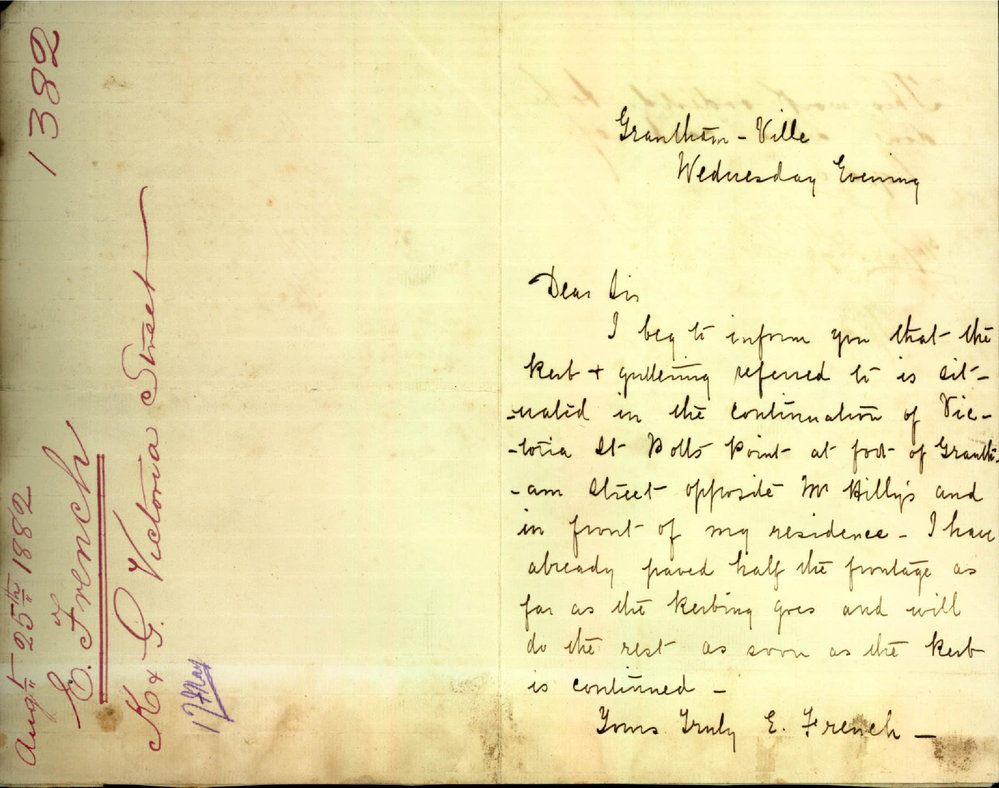 1382
Augt 25th 1882
E. French
K & G. Victoria Street
17 May
Grantham - Ville
Wednesday Evening
Dear Sir
I beg to inform you that the
kerb + guttering referred to is sit-
-uated in the continuation of Vic-
-toria St Potts Point at foot of Granth-
-am Street opposite Mr Hilly's and
in front of my residence - I have
already paved half the frontage as
far as the kerbing goes and will
do the rest as soon as the kerb
is continued -
Yours Truly E. French -